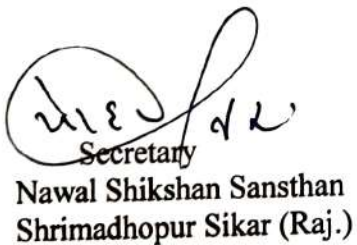 Secretary
Nawal Shikshan Sansthan
Shrimadhopur Sikar (Raj.)